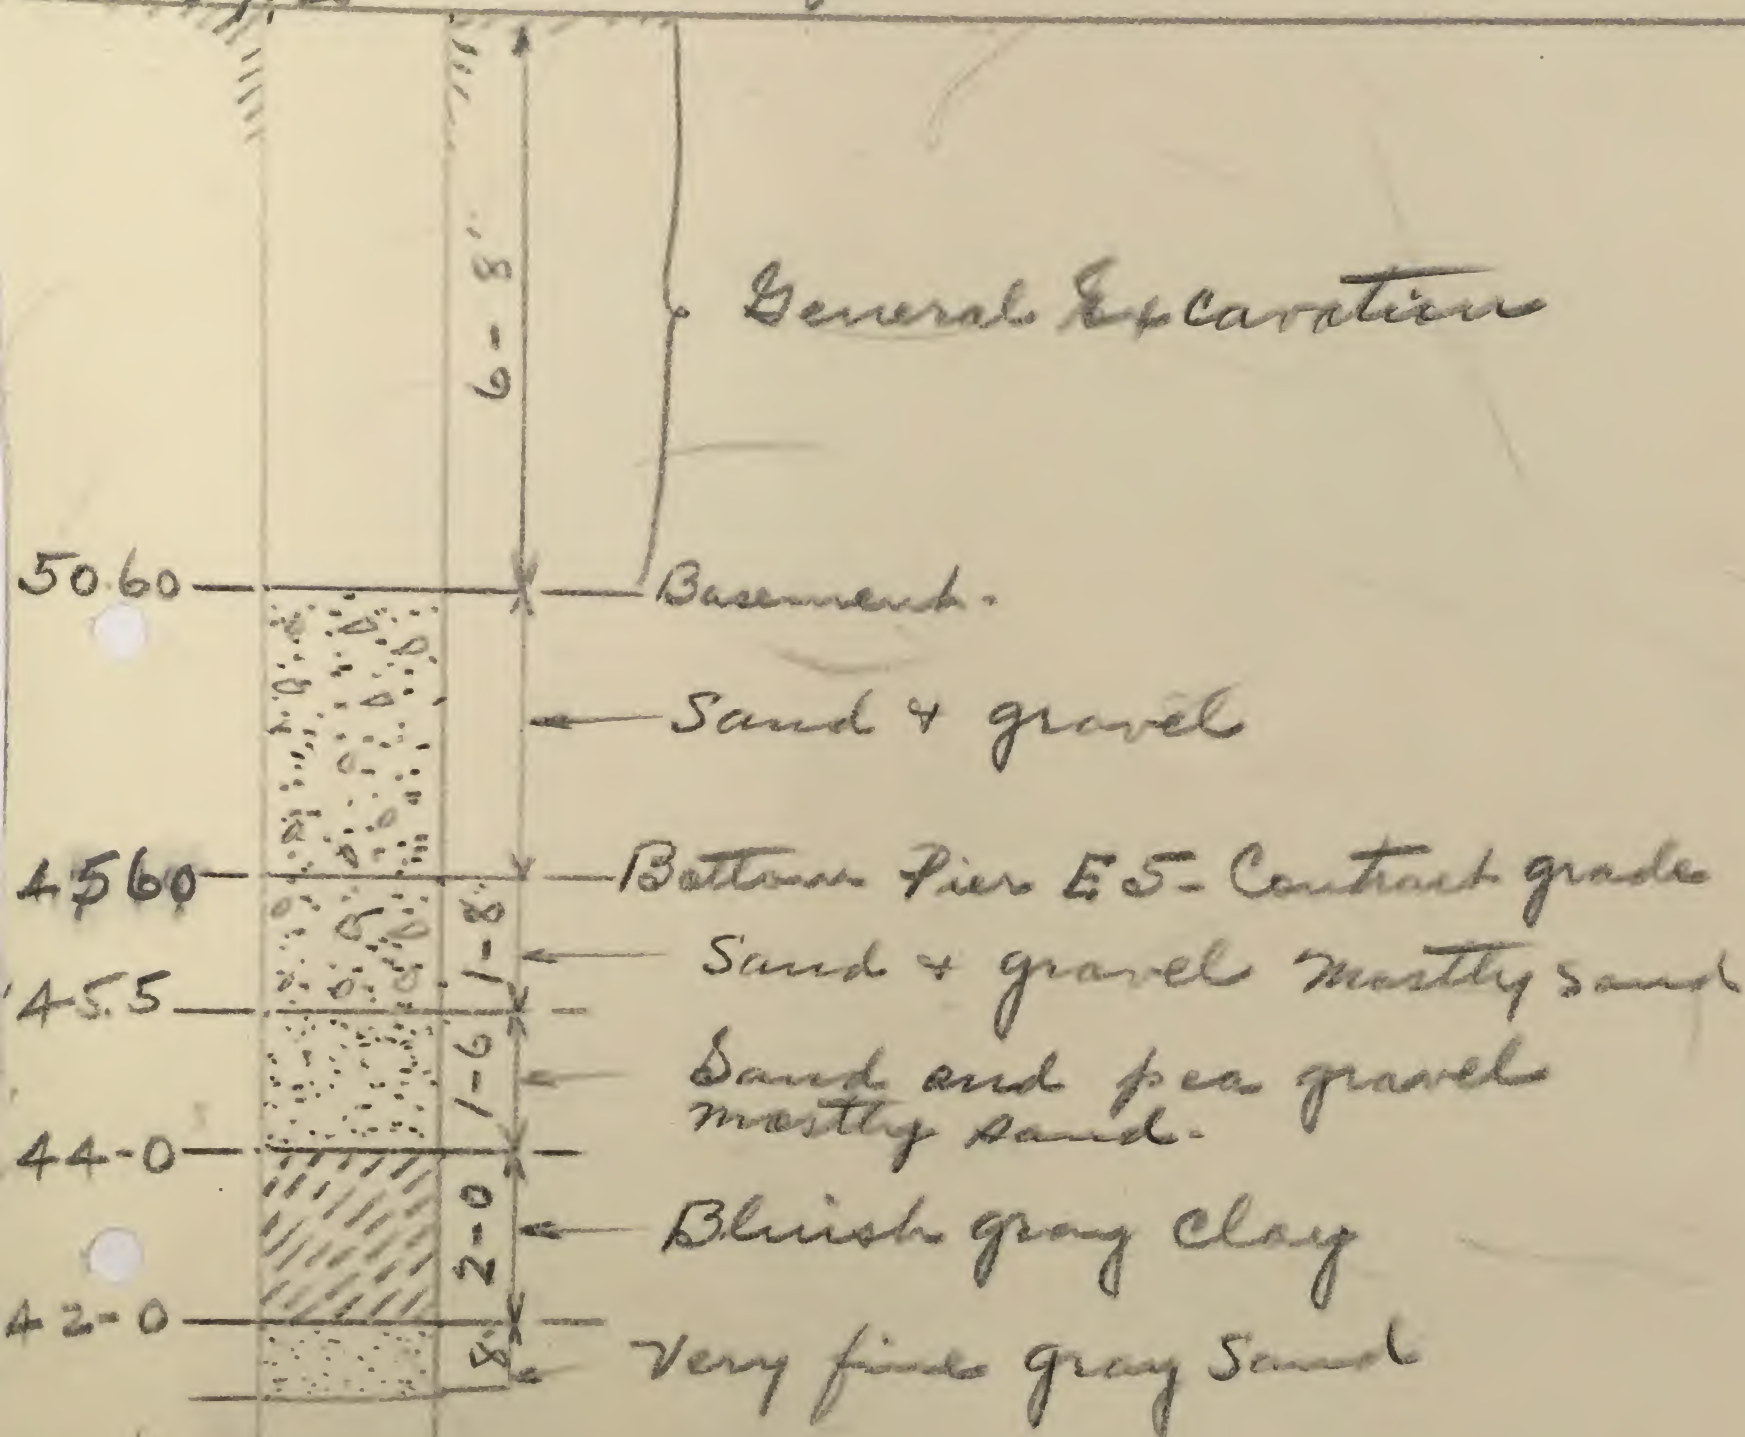 6-8"
General Excavation
50.60
Basement.
Sand & gravel
4560
Bottom Pier E5- Contract grade
1-8"
Sand & gravel mostly sand
45.5
1-6
Sand and pea gravel
mostly sand.
44-0
2-0
Bluish gray clay
42-0
8"
Very fine gray Sand